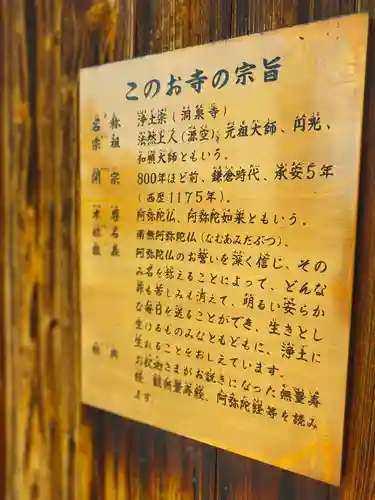 このお寺の宗旨
名称 浄土宗(洞泉寺)
宗祖 法然上人(源空)、元祖大師、円光、
和順大師ともいう。
開宗 800年ほど前、鎌倉時代、承安5年
(西歴1175年)。
本尊 阿弥陀仏、阿弥陀如来ともいう。
称名 南無阿弥陀仏(なむあみだぶつ)。
教義 阿弥陀仏のお誓いを深く信じ、その
み名を称えることによって、どんな
罪も苦しみも消えて、明るい安らか
な毎日を送ることができ、生きとし
生けるものみなともどもに、浄土に
生れることをおしえています。
経典 お釈迦さまがお説きになった無量寿
経、観無量寿経、阿弥陀経等を読み
ます